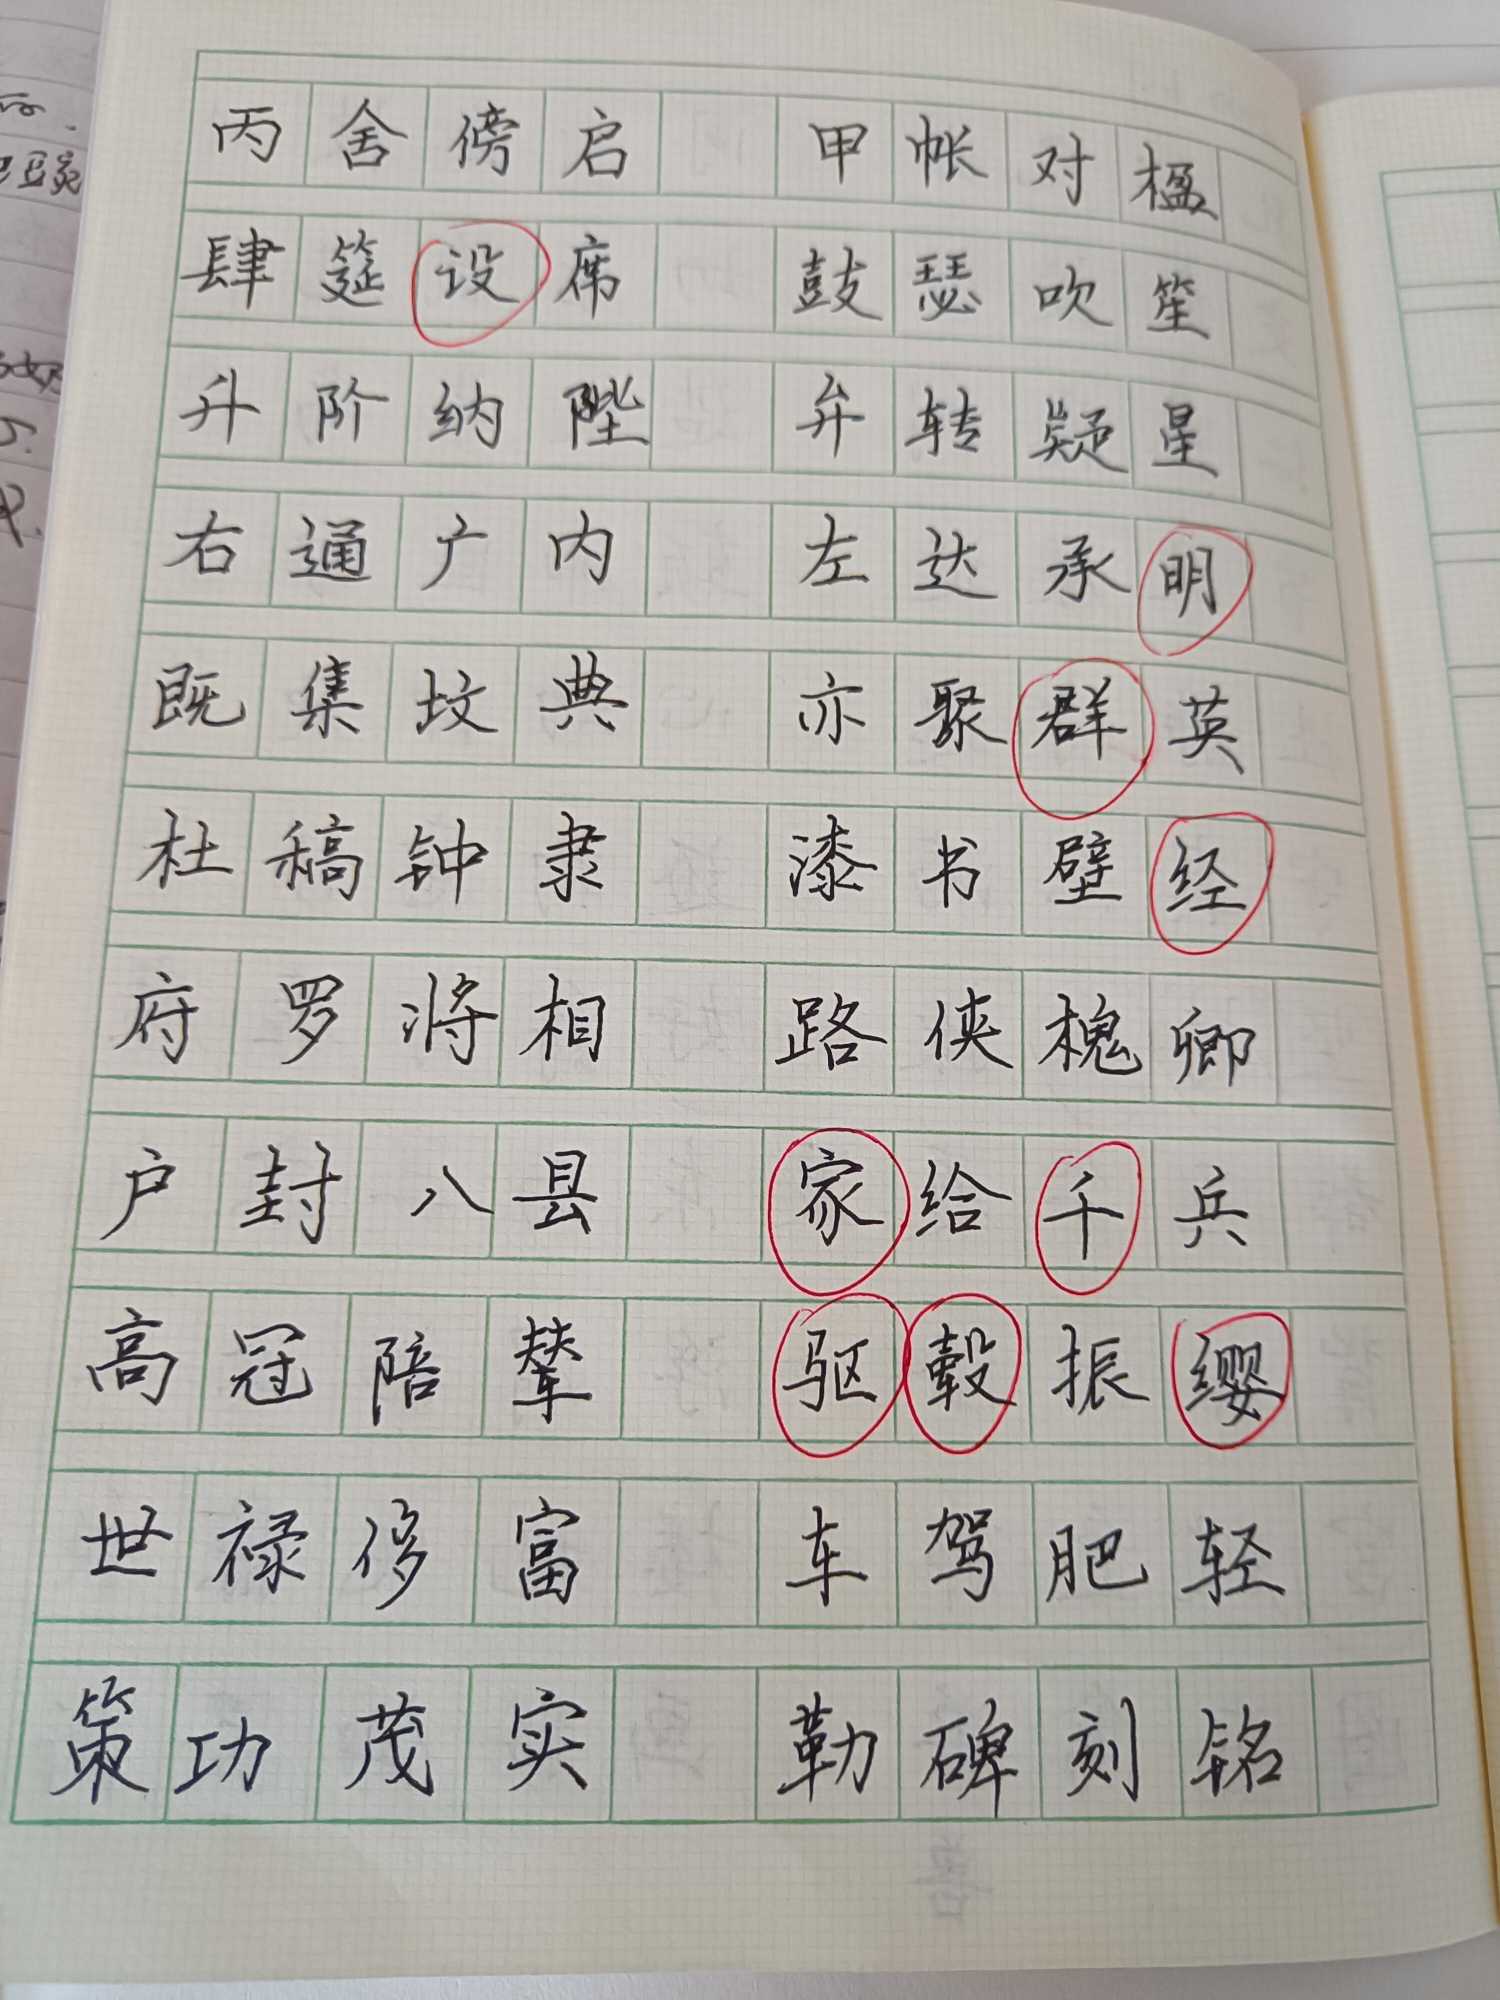 丙舍傍启 甲帐对楹
肆筵设席 鼓瑟吹笙
升阶纳陛 弁转疑星
右通广内 左达承明
既集坟典 亦聚群英
杜稿钟隶 漆书壁经
府罗将相 路侠槐卿
户封八县 家给千兵
高冠陪辇 驱毂振缨
世禄侈富 车驾肥轻
策功茂实 勒碑刻铭